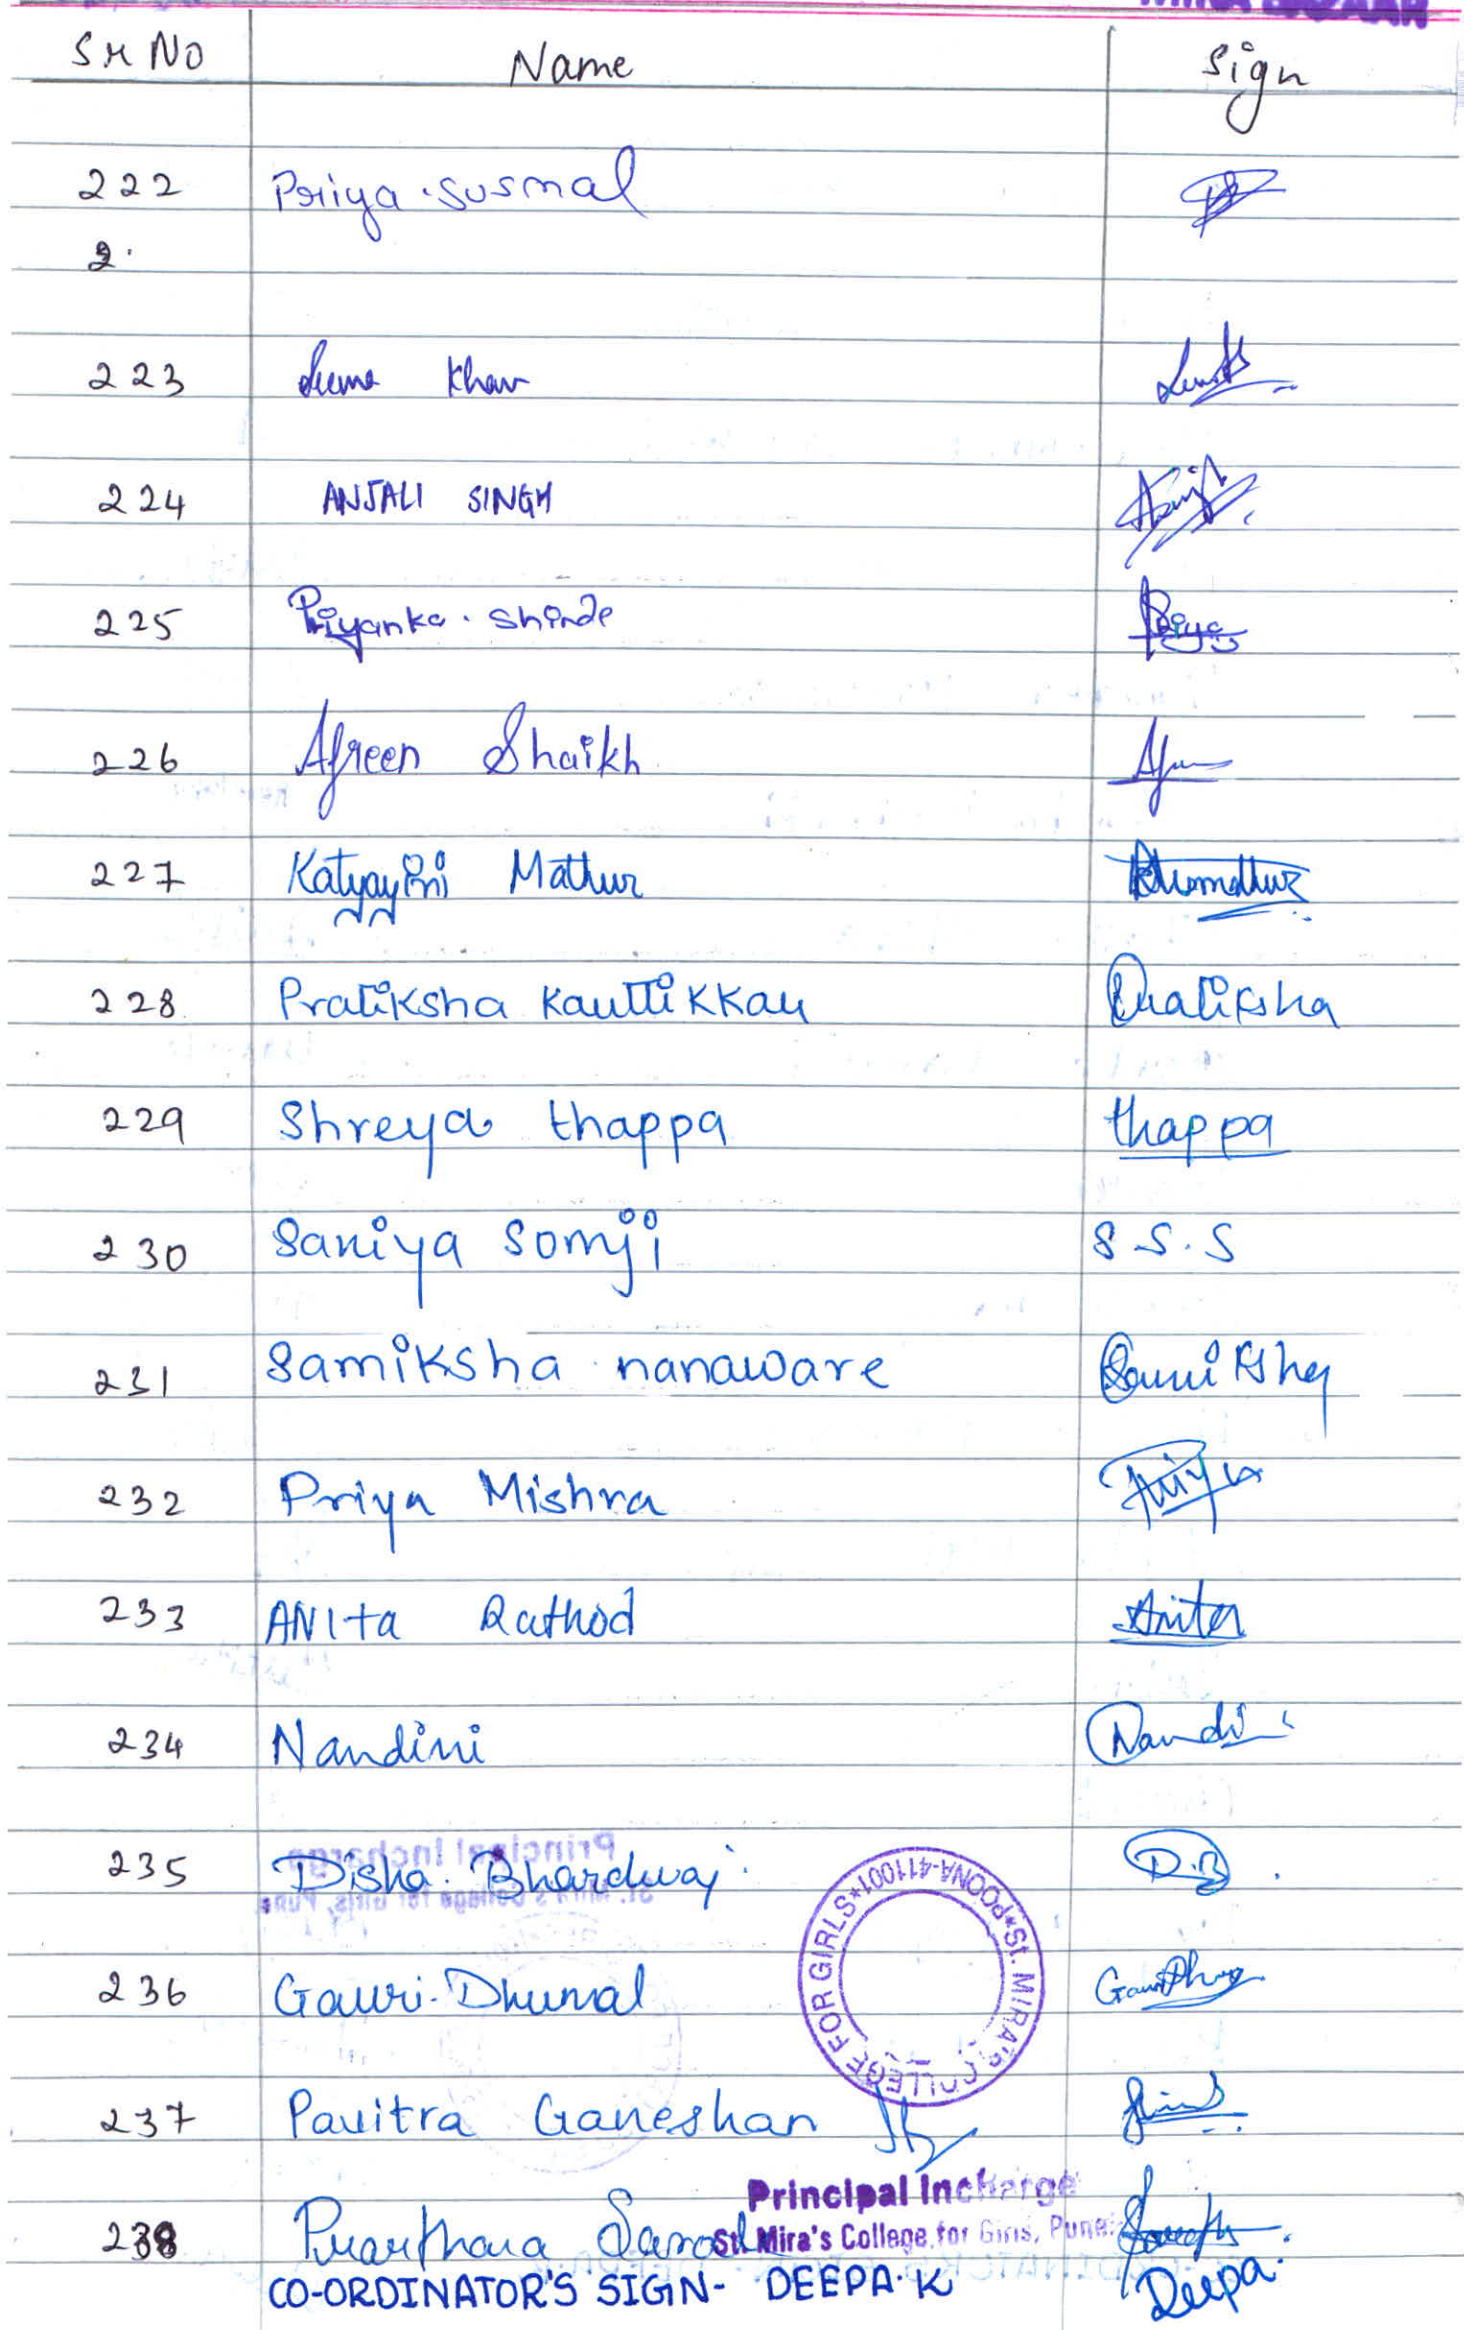 MIRA BAZAAR
Sr No Name Sign
222 Priya . susmal
2.
223 Khan
224 ANJALI SINGH
225 Priyanka . Shinde Priya
226 Afreen Shaikh
227 Katyayini Mathur
228 Pratiksha Kauttikkau Pratiksha
229 Shreya thappa thappa
230 Saniya Somji S.S.S
231 Samiksha nanaware Samiksha
232 Priya Mishra Priya
233 ANIta Rathod Anita
234 Nandini Nandi
235 Disha . Bhardwaj . D.B .
236 Gauri . Dhumal
St. MIRA'S COLLEGE FOR GIRLS*POONA-411001*
237 Pavitra Ganeshan
Principal Incharge
238 Prarthana St. Mira's College for Girls, Pune
CO-ORDINATOR'S SIGN- DEEPA.K Deepa.